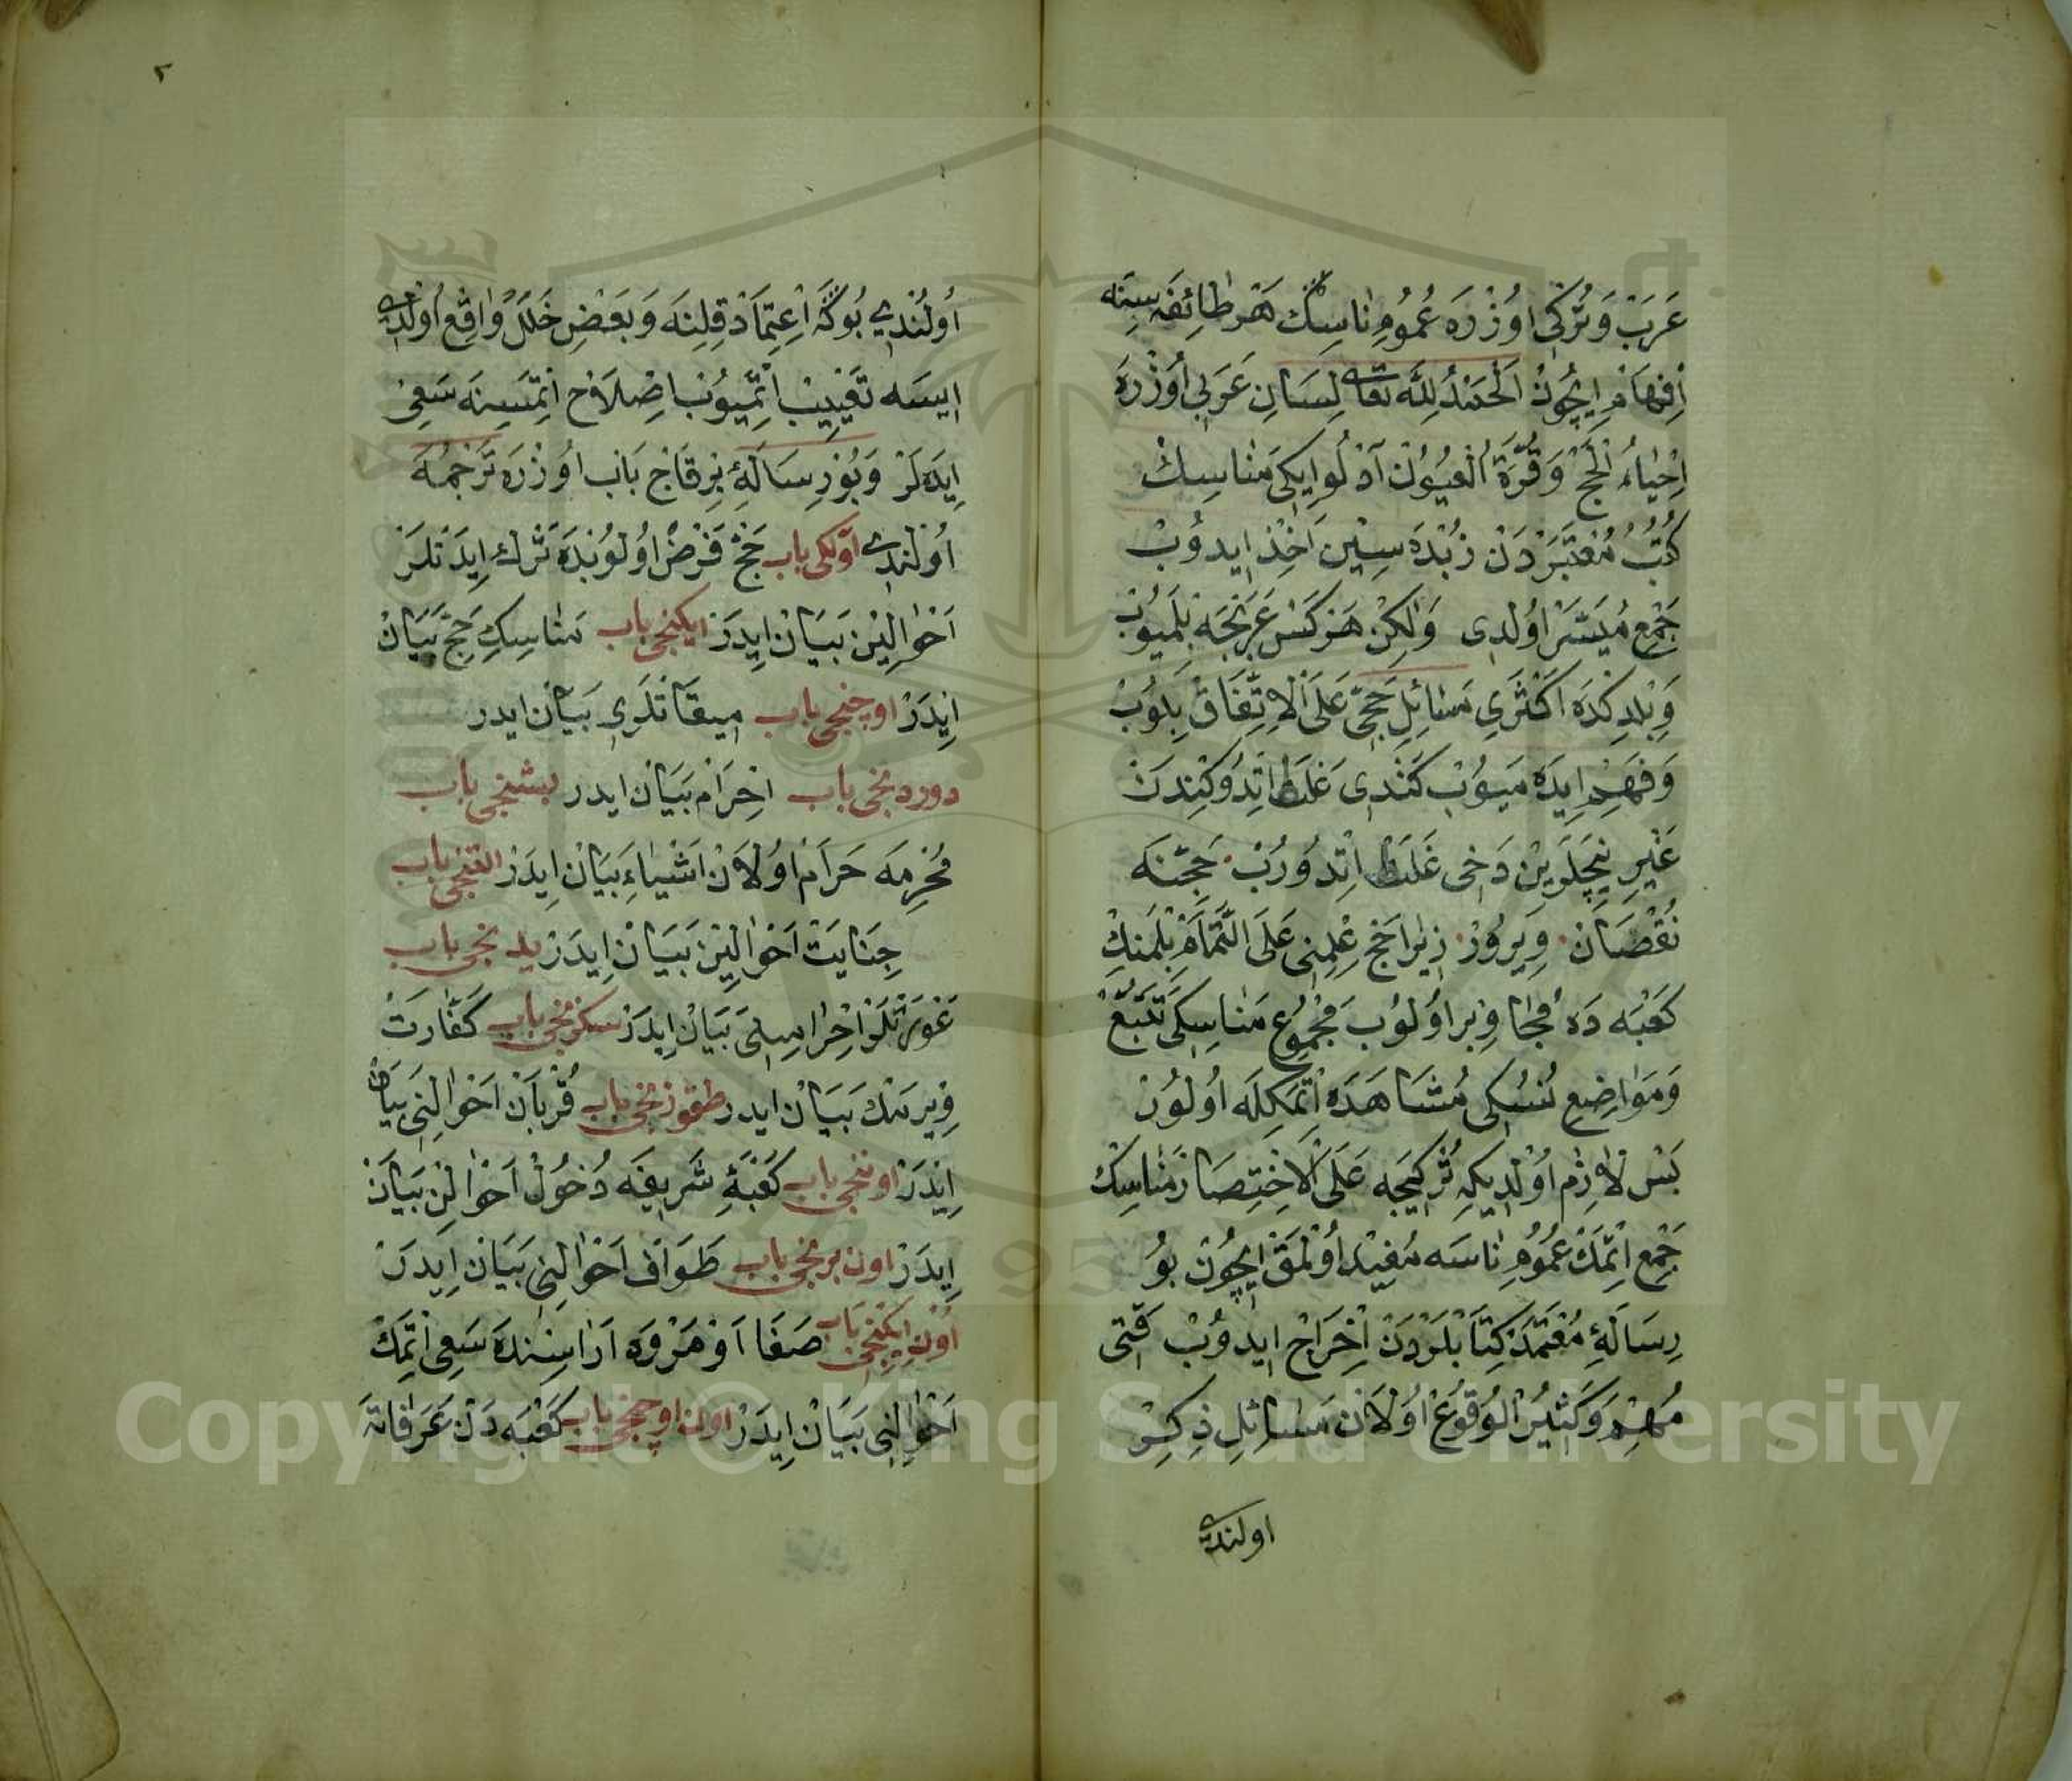 عَرَبْ وَتُرْكِى اوُزْرَه عُمُومِ نٰاسِكْ هَرْ طٰائِفَه سِنَه
اِفْهَامْ اِيچُونْ اَلْحَمْدُ لِلّٰه تَعَالى لِسَانِ عَرَبِى اُوزْرَه
اِحْيٰاءُ الْحَجّْ وَقُرَّةُ الْعُيُونْ آدْلُو اِيكِى مَنٰاسِكْ
كُتُبُ مُعْتَبَرْدَنْ زُبْدَه سِيْن اَخْذْ ايدوُبْ
جَمْعِ مُيَسَّرْ اوُلدى وَلٰكِنْ هَرْكَسْ عَرَبْجَه بِلْمَيُوبْ
وَبِلْدِكْدَه اَكْثَرِى مَسٰائِلِ حَجِّى عَلَى الْاِتِّفَاقْ بِلوُبْ
وَفَهْمِ ايدَه مَيوُبْ كَنْدِى غَلَطْ اِتْدُوكِنْدَنْ
غَيْرِ نِيچَلَرِيْن دَخِى غَلَطْ اِتْدوُرُبْ حَجِّنَه
نُقْصَانْ وِيرُورْ زِيرٰا حَجّْ عِلْمِنِى عَلَى التَّمَامْ بِلْمَكْ
كَعْبَه دَه مُجٰاوِرْ اوُلوُبْ مَجْمُوعِ مَنٰاسِكِى تَتَبُّعْ
وَمَوٰاضِعِ نُسُكِى مُشَاهَدَه اِتْمَكِلَه اُولوُرْ
بَسْ لٰازِمْ اوُلْدِيكِه تُرْكِيجَه عَلَى الْاِخْتِصَارْ مَنٰاسِكْ
جَمْعِ اِتْمَكْ عُمُومِ نٰاسَه مُفِيْد اوُلْمَقْ اِيچُونْ بوُ
رِسَالَۀِ مُعْتَمَدْ كِتَابْلَرْدَنْ اِخْرَاجْ ايدوُبْ قَتِى
مُهِمْ وَكَثِيْرُ الْوُقُوعْ اوُلَانْ مَسٰائِلِ ذِكِرْ
اولندى
٢
اُولُنْدِى بُوكَه اِعْتِمَادْ قِلِنَه وَبَعْضِ خَلَلْ وٰاقِعْ اُولْدى
اِيسَه تَعْيِيبْ اِتْمَيُوبْ اِصْلَاحْ اِتْمَسِنَه سَعِى
ايدَه لَرْ وَبُو رِسَالَۀِ بِرْقَاچ بَابْ اوُزْرَه تَرْجَمَه
اُولْنْدى اَوّلكى باب حَجّ فَرْضْ اوُلوُبْدَه تَرْك اِيدَنْلَرَ
اَحْوٰالِيْن بَيَانْ اِيدَرْ ايكنجى باب مَنٰاسِكِ حَجّ بَيَانْ
اِيدَرْ اوچنجى باب مِيقَاتْلَرِى بَيَانْ ايدر
دوردنجى باب اِحْرَامْ بَيَانْ ايدر بشنجى باب
مُحْرِمَه حَرَامْ اوُلَانْ اَشْيٰاءِ بَيَانْ اِيدَرْ التنجى باب
جِنٰايَتْ اَحْوٰالِيْن بَيَانْ اِيدَرْ يدنجى باب
عَوْرَتْلَرْ اِحْرٰامِنِى بَيَانْ اِيدَرْ سكزنجى باب كَفّٰارَتْ
وِيرمَكْ بَيَانْ ايدر طقوزنجى باب قُرْبَانْ اَحْوٰالِنِى بَيَانْ
اِيدَرْ اوننجى باب كَعْبَۀِ شَرِيفَه دُخُولْ اَحْوٰالِنْ بَيَانْ
اِيدَرْ اون برنجى باب طَوَافْ اَحْوٰالِنِى بَيَانْ اِيدَرْ
اون ايكنجى باب صَفَا اَوْ مَرْوَه ارَاسِنْدَه سَعِى اِتْمَكْ
اَحْوٰالِنِى بَيَانْ اِيدَرْ اون اوچنجى باب كَعْبَه دَنْ عَرَفٰاتَه
Copyright © King Saud University